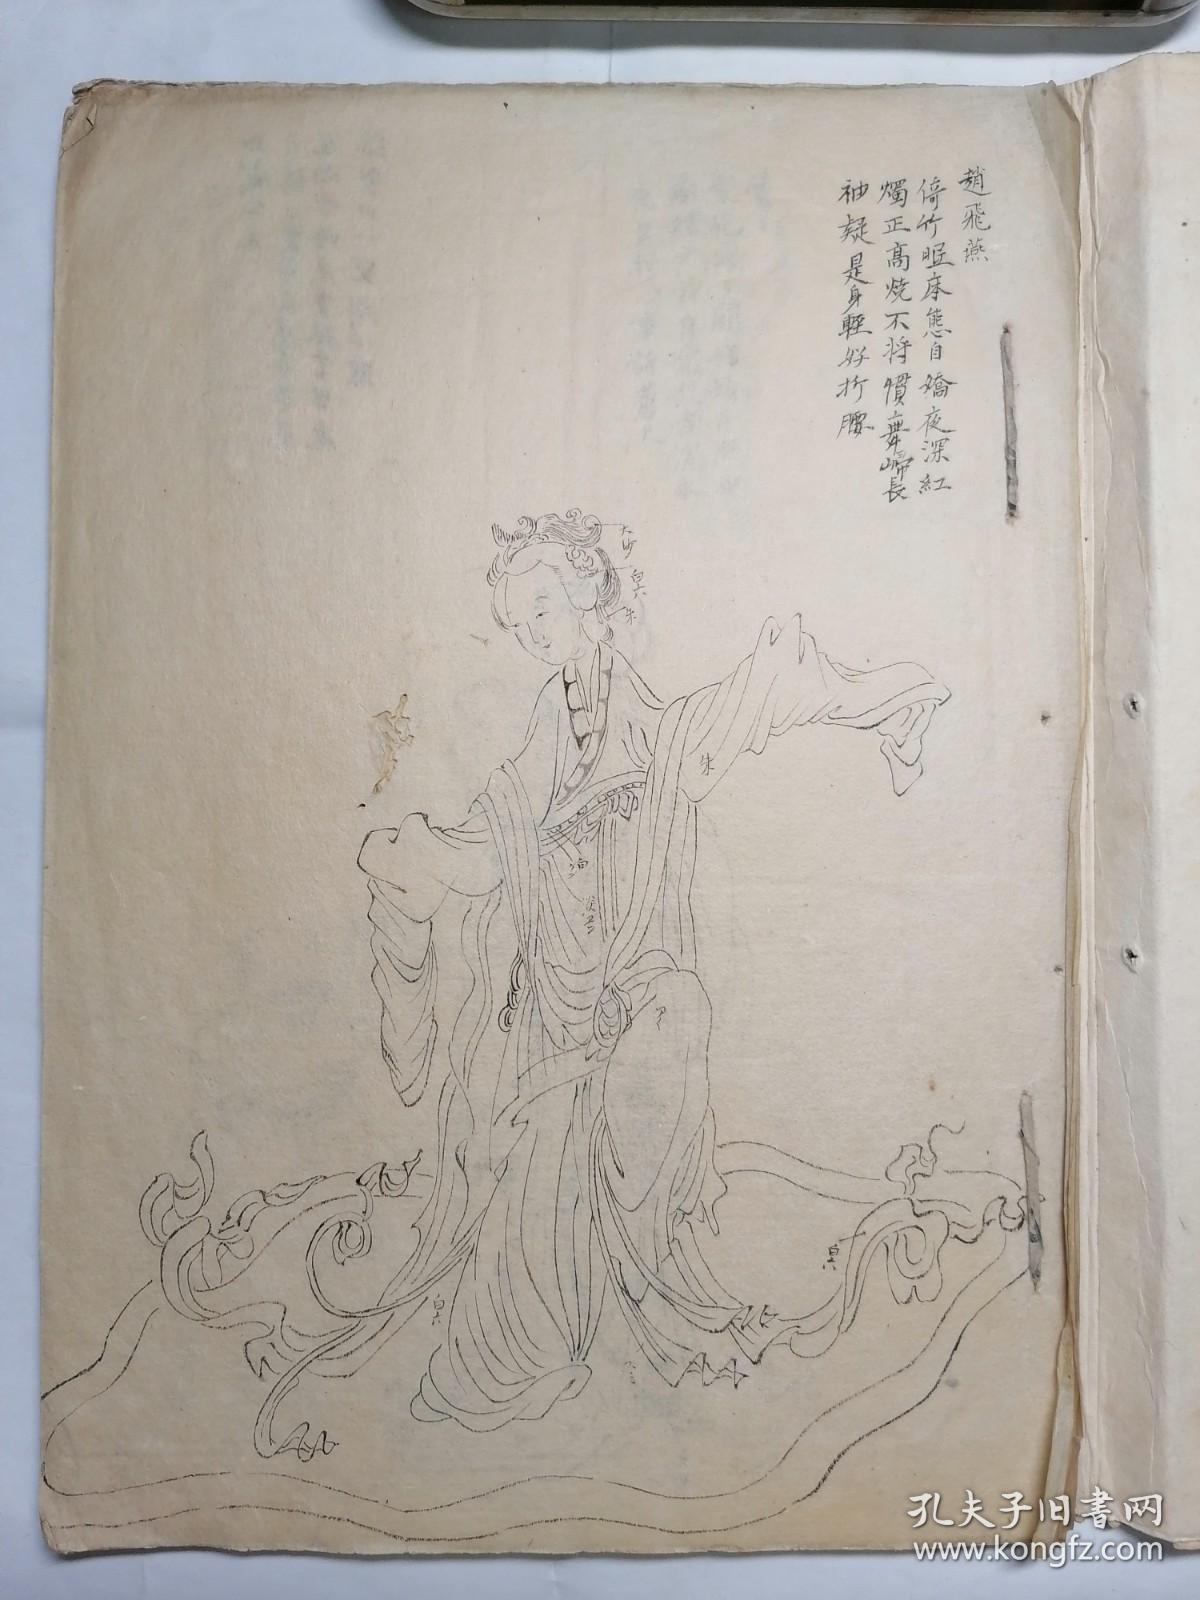 趙飛燕
倚竹眠床態自嬌夜深紅
燭正高燒不将慣舞歸長
袖疑是身輕好折腰
朱
朱
白
孔夫子旧书网
www.kongfz.com